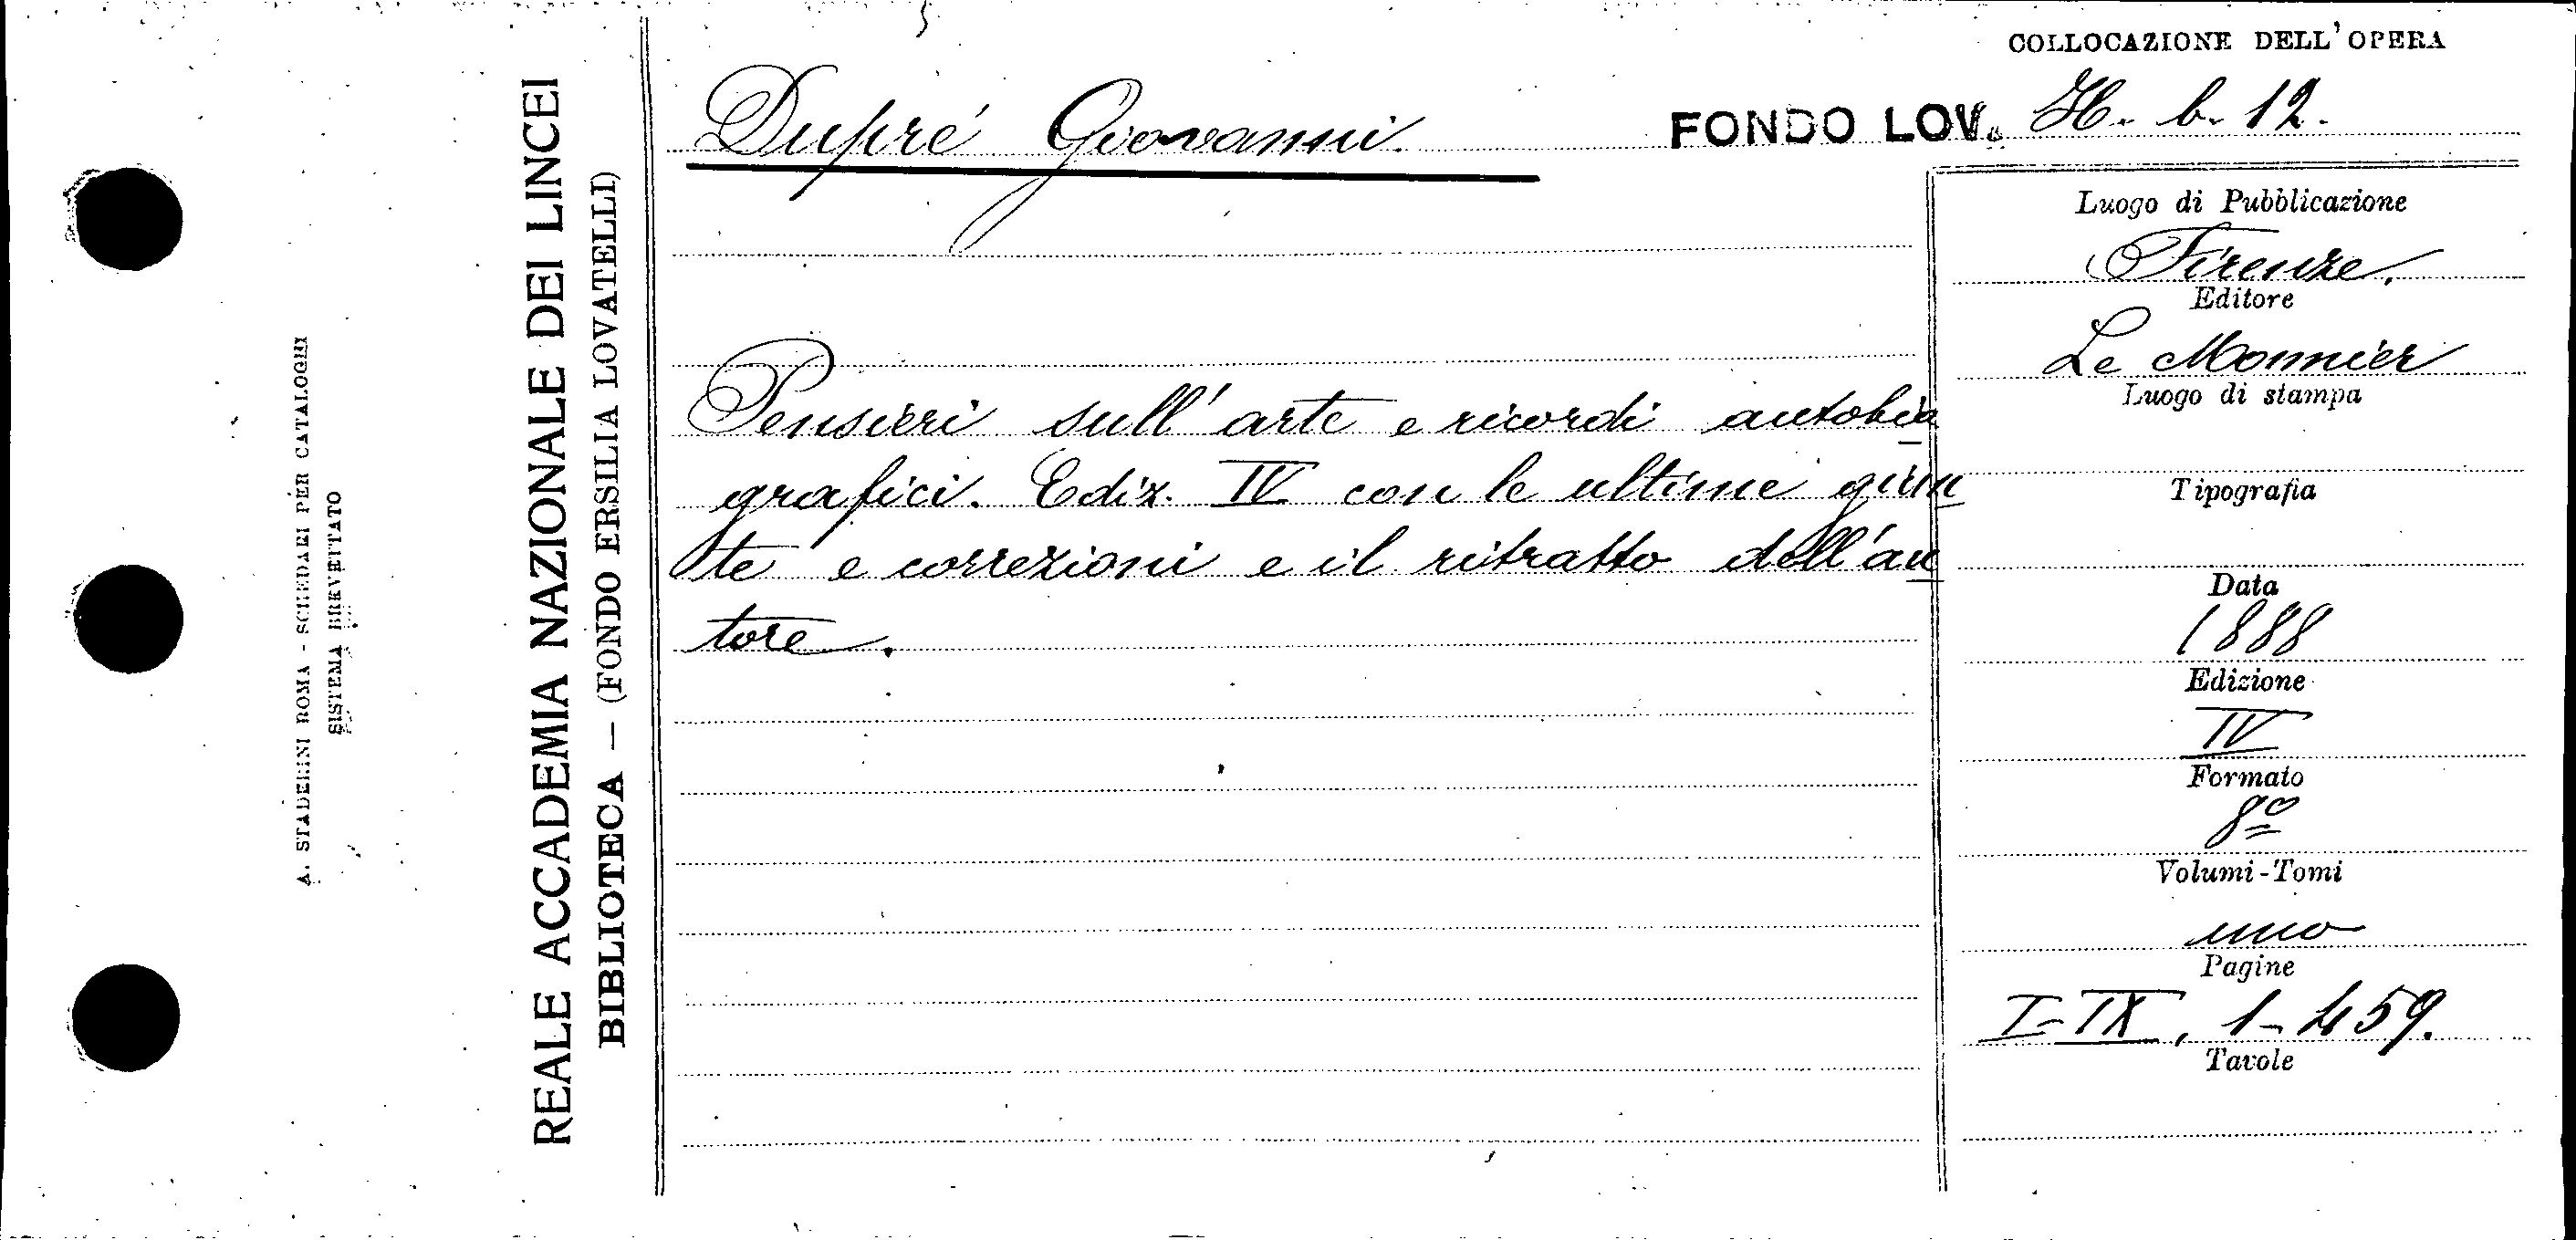 A. STADERINI ROMA - SCHEDARI PER CATALOGHI
SISTEMA BREVETTATO
REALE ACCADEMIA NAZIONALE DEI LINCEI
BIBLIOTECA — (FONDO ERSILIA LOVATELLI)
COLLOCAZIONE DELL'OPERA
Dupré Giovanni. FONDO LOV. H. b. 12.
Pensieri sull'arte e ricordi autobio
grafici. Ediz. IV con le ultime giun
te e correzioni e il ritratto dell'au
tore.
Luogo di Pubblicazione
Firenze.
Editore
Le Monnier
Luogo di stampa
Tipografia
Data
1888
Edizione
IV
Formato
8º
Volumi-Tomi
uno
Pagine
I-IX, 1-459.
Tavole